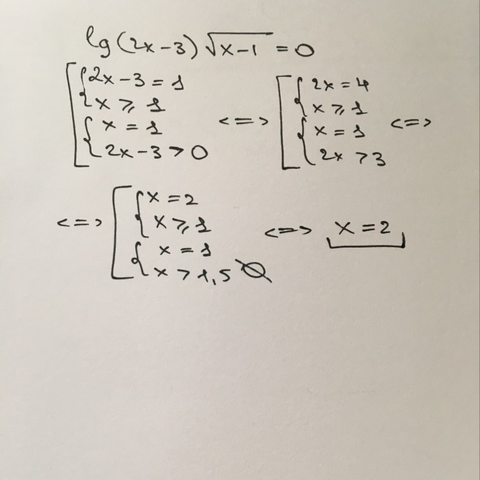 lg(2x-3)√x-1 = 0
[ { 2x-3=1 x⩾1 { x=1 2x-3>0 <=> [ { 2x=4 x⩾1 { x=1 2x>3 <=>
<=> [ { x=2 x⩾1 { x=1 x>1,5 ∅ <=> x=2